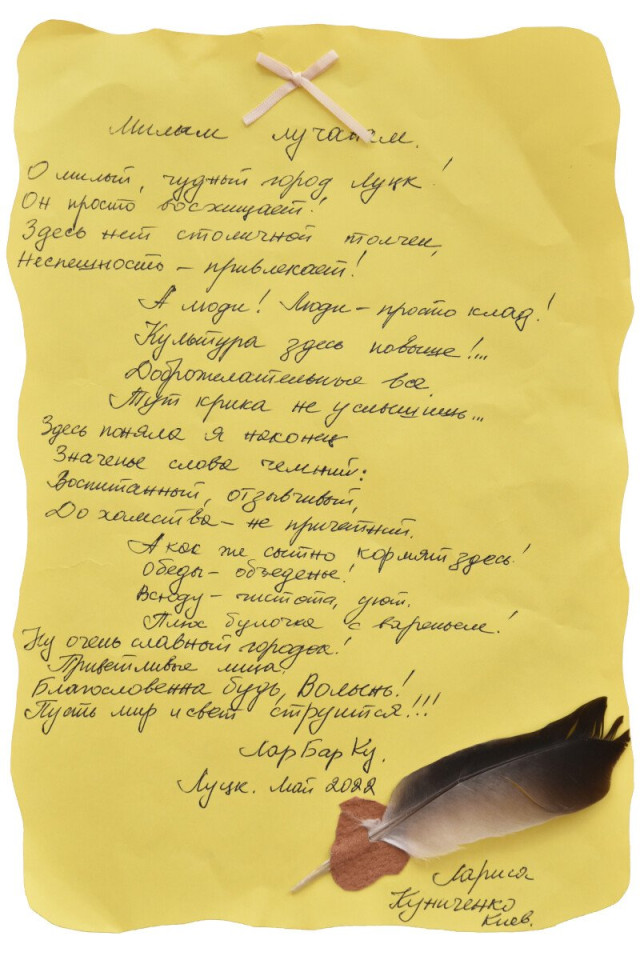 Милым лучанам.
О милый, чудный город Луцк!
Он просто восхищает!
Здесь нет столичной толчеи,
Неспешность – привлекает!
А люди! Люди – просто клад!
Культура здесь повыше!...
Доброжелательные все.
Тут крика не услышишь...
Здесь поняла я наконец
Значенье слова чемний:
Воспитанный, отзывчивый,
До хамства – не причетний.
А как же сытно кормят здесь!
Обеды – объеденье!
Всюду – чистота, уют.
Плюс булочка с вареньем!
Ну очень славный городок!
Приветливые лица!
Благословенна будь, Волынь!
Пусть мир и свет струится!!!
ЛарБарКу.
Луцк. Май 2022
Лариса
Куниченко
Киев.